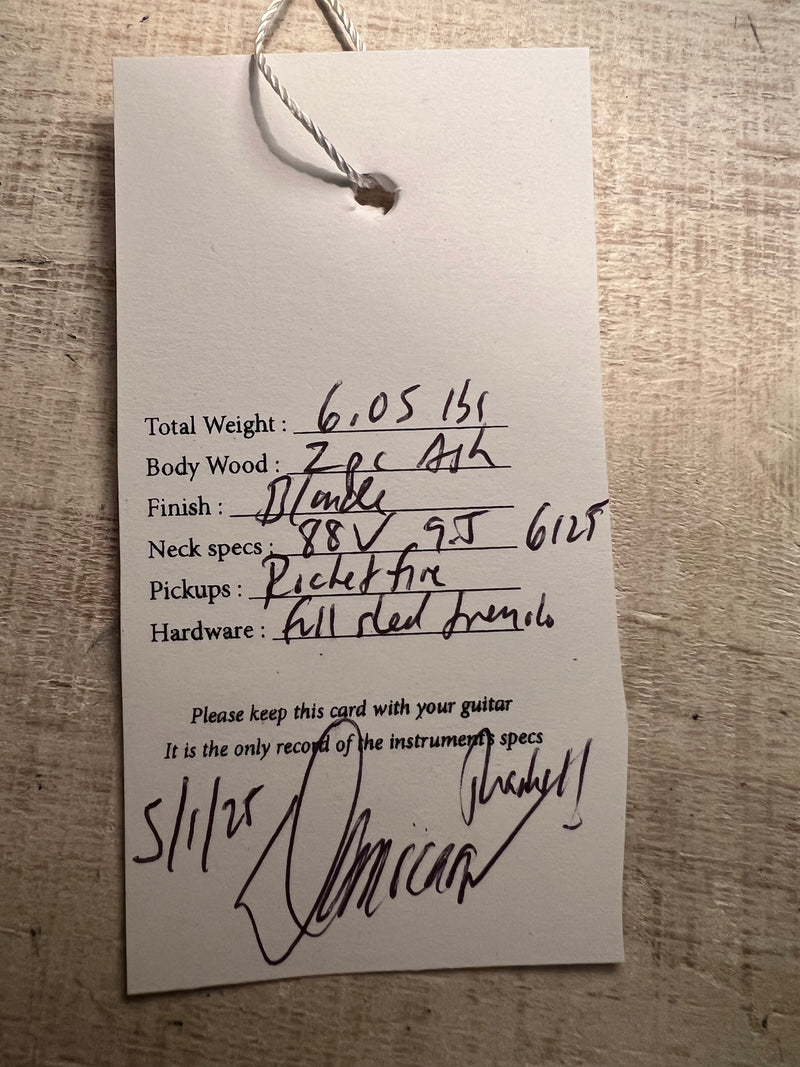 Total Weight : 6.05 lbs
Body Wood : 2 pc Ash
Finish : Blonde
Neck specs : 88V 9.5 6125
Pickups : Rocketfire
Hardware : full sled tremolo
Please keep this card with your guitar
It is the only record of the instrument's specs
Thanks!!
5/1/25